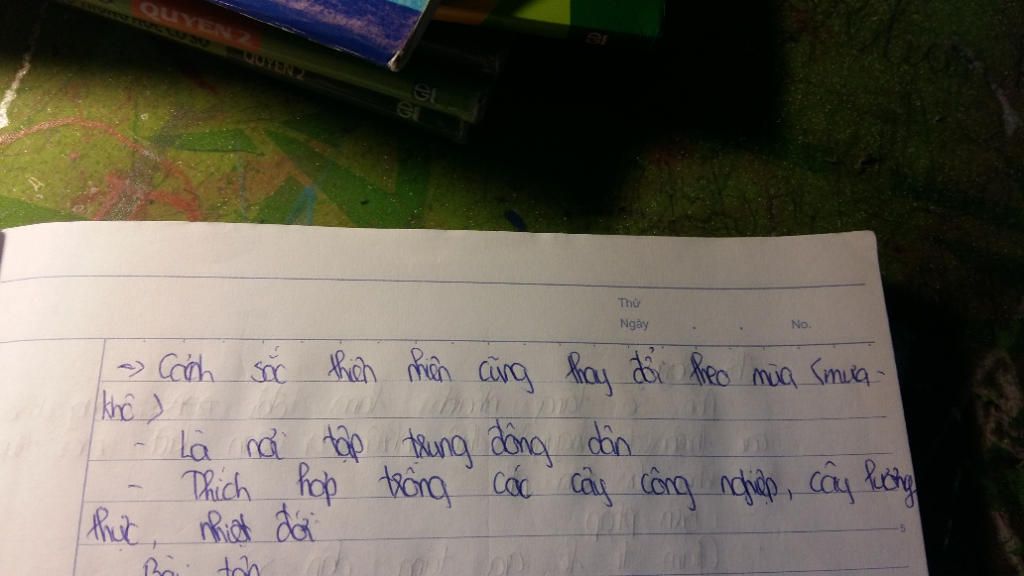 QUYỂN 2
QUYỂN 2
Thứ
Ngày . . No.
=> Cảnh sắc thiên nhiên cũng thay đổi theo mùa (mưa -
khô)
- Là nơi tập trung đông dân
- Thích hợp trồng các cây công nghiệp, cây lương
thực, nhiệt đới
5
Bài tập